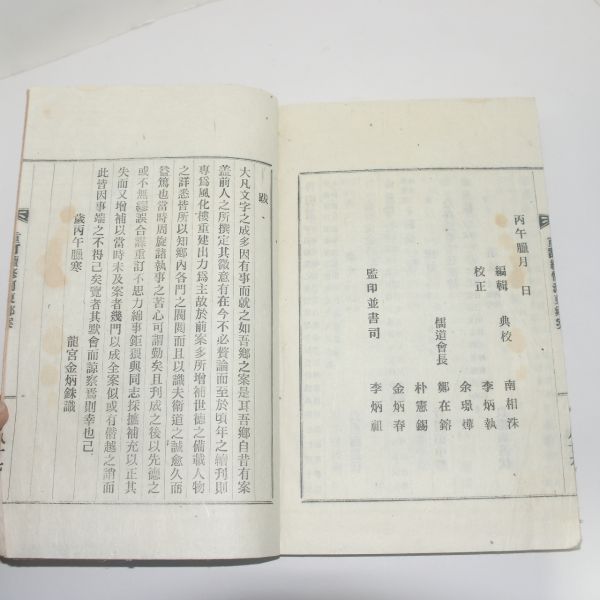 丙午臘月 日
編輯 典校 南相洙
校正 李炳執
余璟燁
儒道會長 鄭在鎔
朴憲錫
金炳春
監印並書司 李炳祖
跋
大凡文字之成多因有事而就之如吾鄉之案是耳吾鄉自昔有案
盖前人之所撰定其微意有在今不必贅論而至於頃年之續刊則
專爲風化樓重建出力爲主故於前案多所增補世德之備載人物
之詳悉皆所以知鄉內各門之閥閱而且以識夫衛道之誠愈久而
益篤也當時周旋諸執事之苦心可謂勤矣且刋成之後以先德之
或不無謬誤合謀重訂不思力綿事鉅猥與同志採摭補充以正其
失而又增補以當時未及案者幾門以成全案似或有僭越之誚而
此皆因事端之不得已矣覽者其默會而諒察焉則幸也已
歲丙午臘寒
龍宮金炳銖識